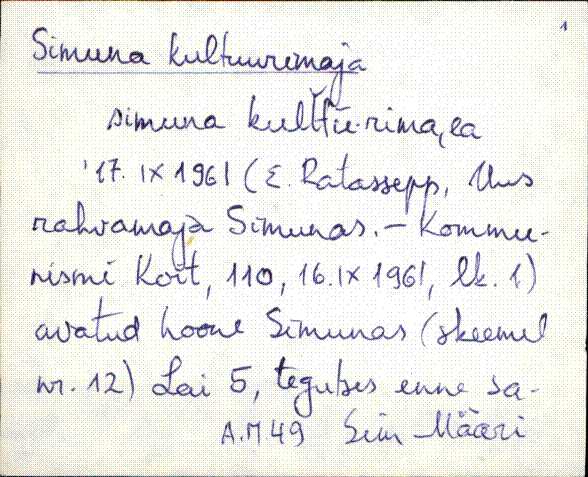 1
Simuna kultuurimaja
simuna kulttū.rima,ea
'17. IX 1961 (E. Ratassepp, Uus
rahvamaja Simunas. – Kommu-
nismi Koit, 110, 16. IX 1961, lk. 1)
avatud hoone Simunas (skeemil
nr. 12) Lai 5, tegutses enne sa-
A.M 49 Sim Määri